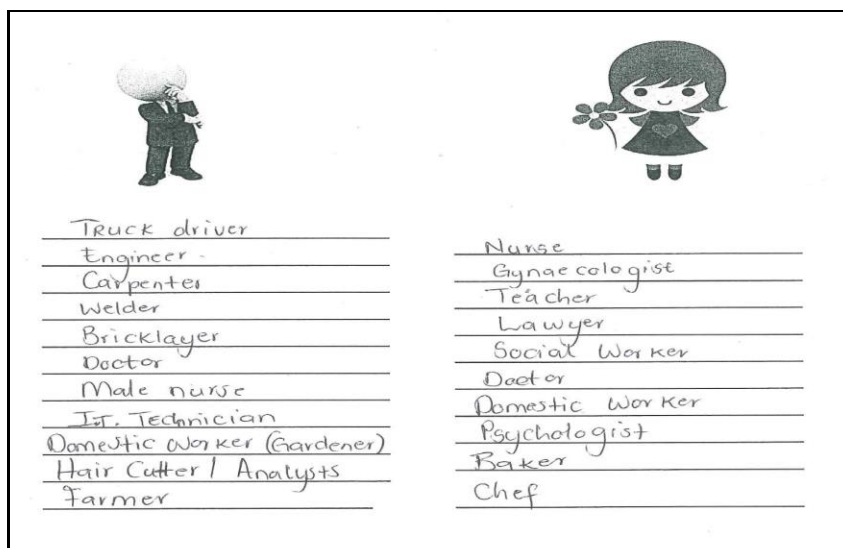 Truck driver
Engineer
Carpenter
Welder
Bricklayer
Doctor
Male nurse
I.T. Technician
Domestic Worker (Gardener)
Hair Cutter / Analysts
Farmer
Nurse
Gynaecologist
Teacher
Lawyer
Social Worker
Doctor
Domestic Worker
Psychologist
Baker
Chef